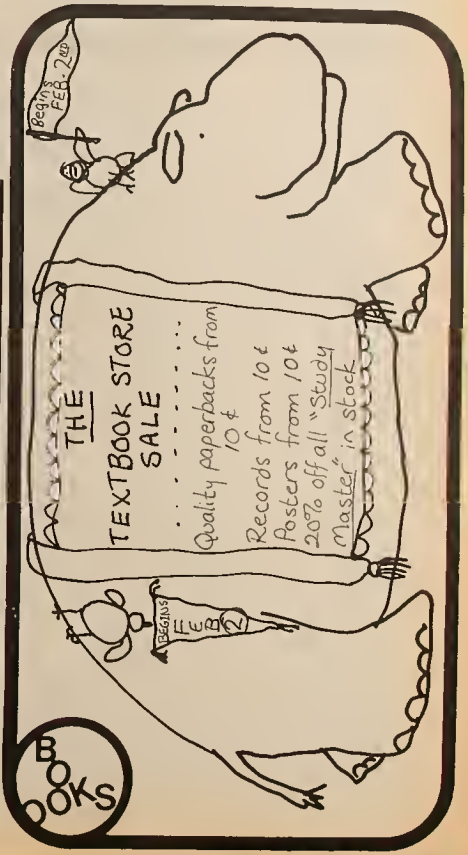 Begins
FEB. 2ND
THE
TEXTBOOK STORE
SALE
..........
Quality paperbacks from
10¢
Records from 10¢
Posters from 10¢
20% off all "Study
Master" in stock
BEGINS
FEB
2
BOOKS